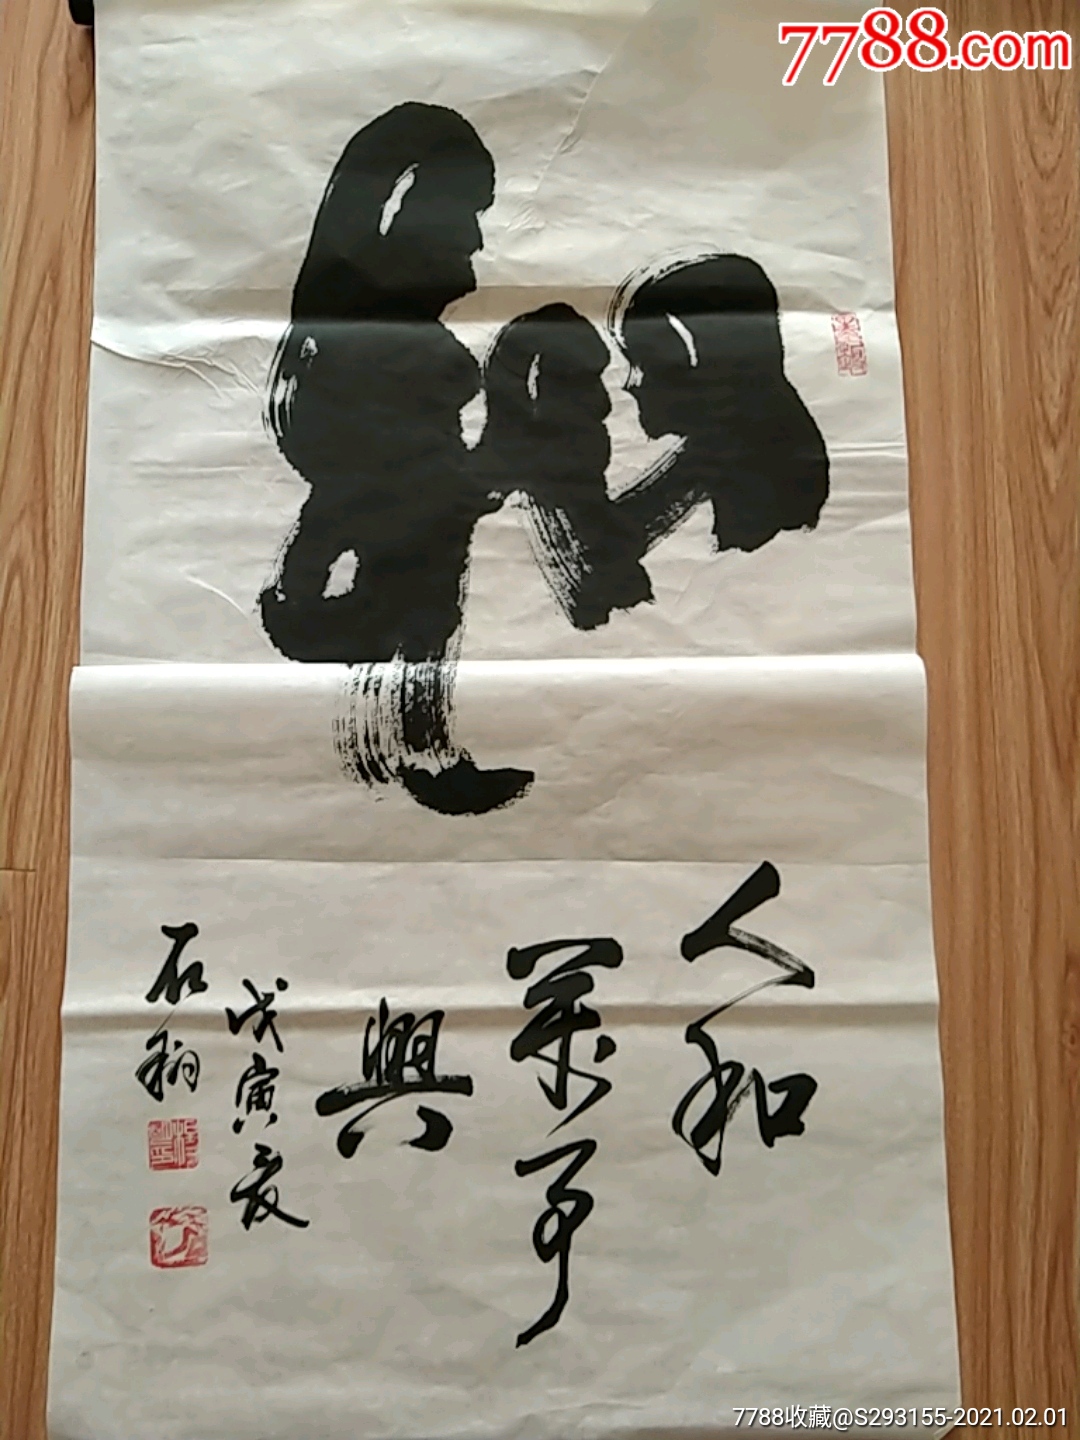 7788.com
和
人和
萬事
興
戊寅夏
石
7788收藏@S293155-2021.02.01